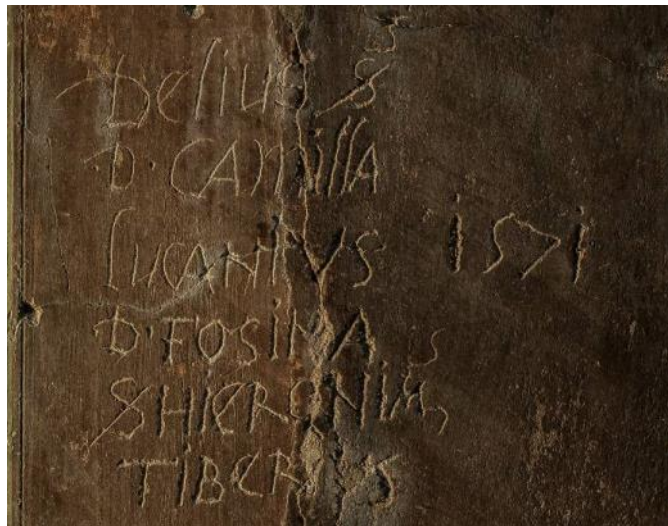 Delius &
D. CAMilla
lUCANTVS 1571
D. FOSiNA
& HiERONiM,
TiBERiVS